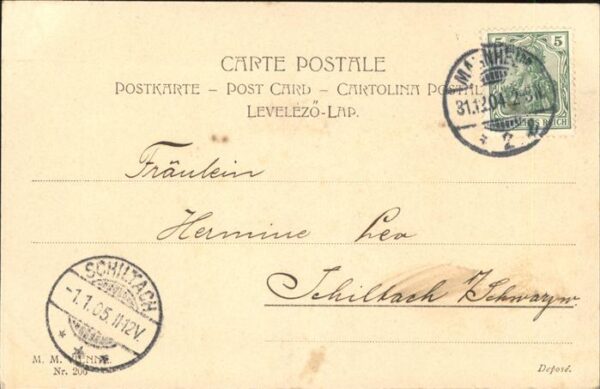 CARTE POSTALE
POSTKARTE – POST CARD – CARTOLINA POSTALE
LEVELEZŐ-LAP.
5 5
MANNHEIM
31.12.04. 2-3N.
* 2
REICH
Fräulein
Hermine Leo
Schiltach / Schwarzw.
SCHILTACH
-1.1.05. 11-12V.
* * *
M. M. VIENNE
Nr. 200
Deposé.